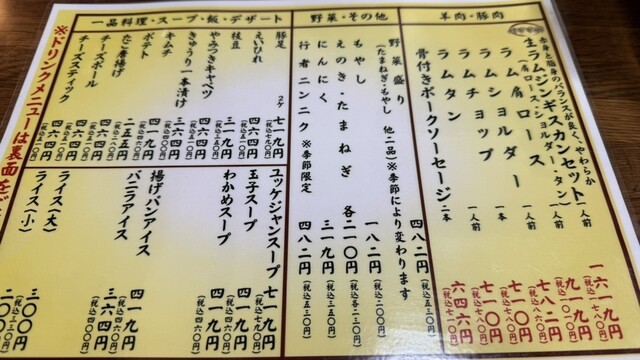 羊肉・豚肉
赤身と脂身のバランスが良く、やわらか
生ラムジンギスカンセット 一人前 一六一九円
(肩ロース・ショルダー・タン)
ラム肩ロース 一人前 九一九円
ラムショルダー 一人前 七八二円
ラムチョップ 一本 七一〇円
ラムタン 一人前 七一〇円
骨付きポークソーセージ 二本 六四六円
野菜・その他
野菜盛り 四八二円
(たまねぎ・もやし 他二品)※季節により変わります (税込五三〇円)
もやし 一八二円 (税込二〇〇円)
えのき・たまねぎ 各二一〇円 (税込各二三〇円)
にんにく 三一九円 (税込三五〇円)
行者ニンニク ※季節限定 四八二円 (税込五三〇円)
一品料理・スープ・飯・デザート
豚足 2ケ 七一九円 (税込七九〇円)
えいひれ 四六四円 (税込五一〇円)
枝豆 三一九円 (税込三五〇円)
やみつきキャベツ 四六四円 (税込五一〇円)
きゅうり一本漬け 三六四円 (税込四〇〇円)
キムチ 三六四円 (税込四〇〇円)
ポテト 四一九円 (税込四六〇円)
たこ唐揚げ 二五五円
チーズボール 四六四円
チーズスティック 四六四円
ユッケジャンスープ 七一九円 (税込七九〇円)
玉子スープ 四一九円 (税込四六〇円)
わかめスープ 四一九円 (税込四六〇円)
揚げパンアイス 四一九円 (税込四六〇円)
バニラアイス 三六四円 (税込四〇〇円)
ライス(大) 三〇〇円 (税込三三〇円)
ライス(小) 二〇〇円
※ドリンクメニューは裏面を